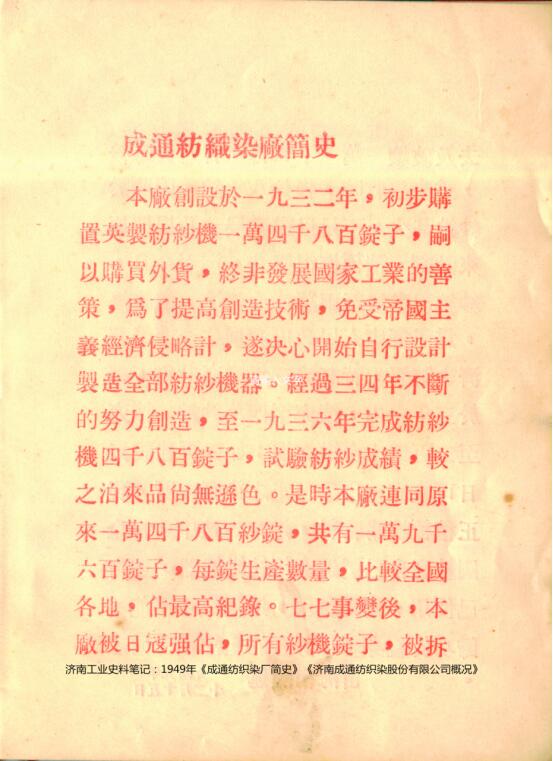 成通紡織染廠簡史
本廠創設於一九三二年，初步購
置英製紡紗機一萬四千八百錠子，嗣
以購買外貨，終非發展國家工業的善
策，爲了提高創造技術，免受帝國主
義經濟侵略計，遂決心開始自行設計
製造全部紡紗機器。經過三四年不斷
的努力創造，至一九三六年完成紡紗
機四千八百錠子，試驗紡紗成績，較
之泊來品尚無遜色。是時本廠連同原
來一萬四千八百紗錠，共有一萬九千
六百錠子，每錠生產數量，比較全國
各地，佔最高紀錄。七七事變後，本
廠被日冦强佔，所有紗機錠子，被拆
济南工业史料笔记：1949年《成通纺织染厂简史》《济南成通纺织染股份有限公司概况》